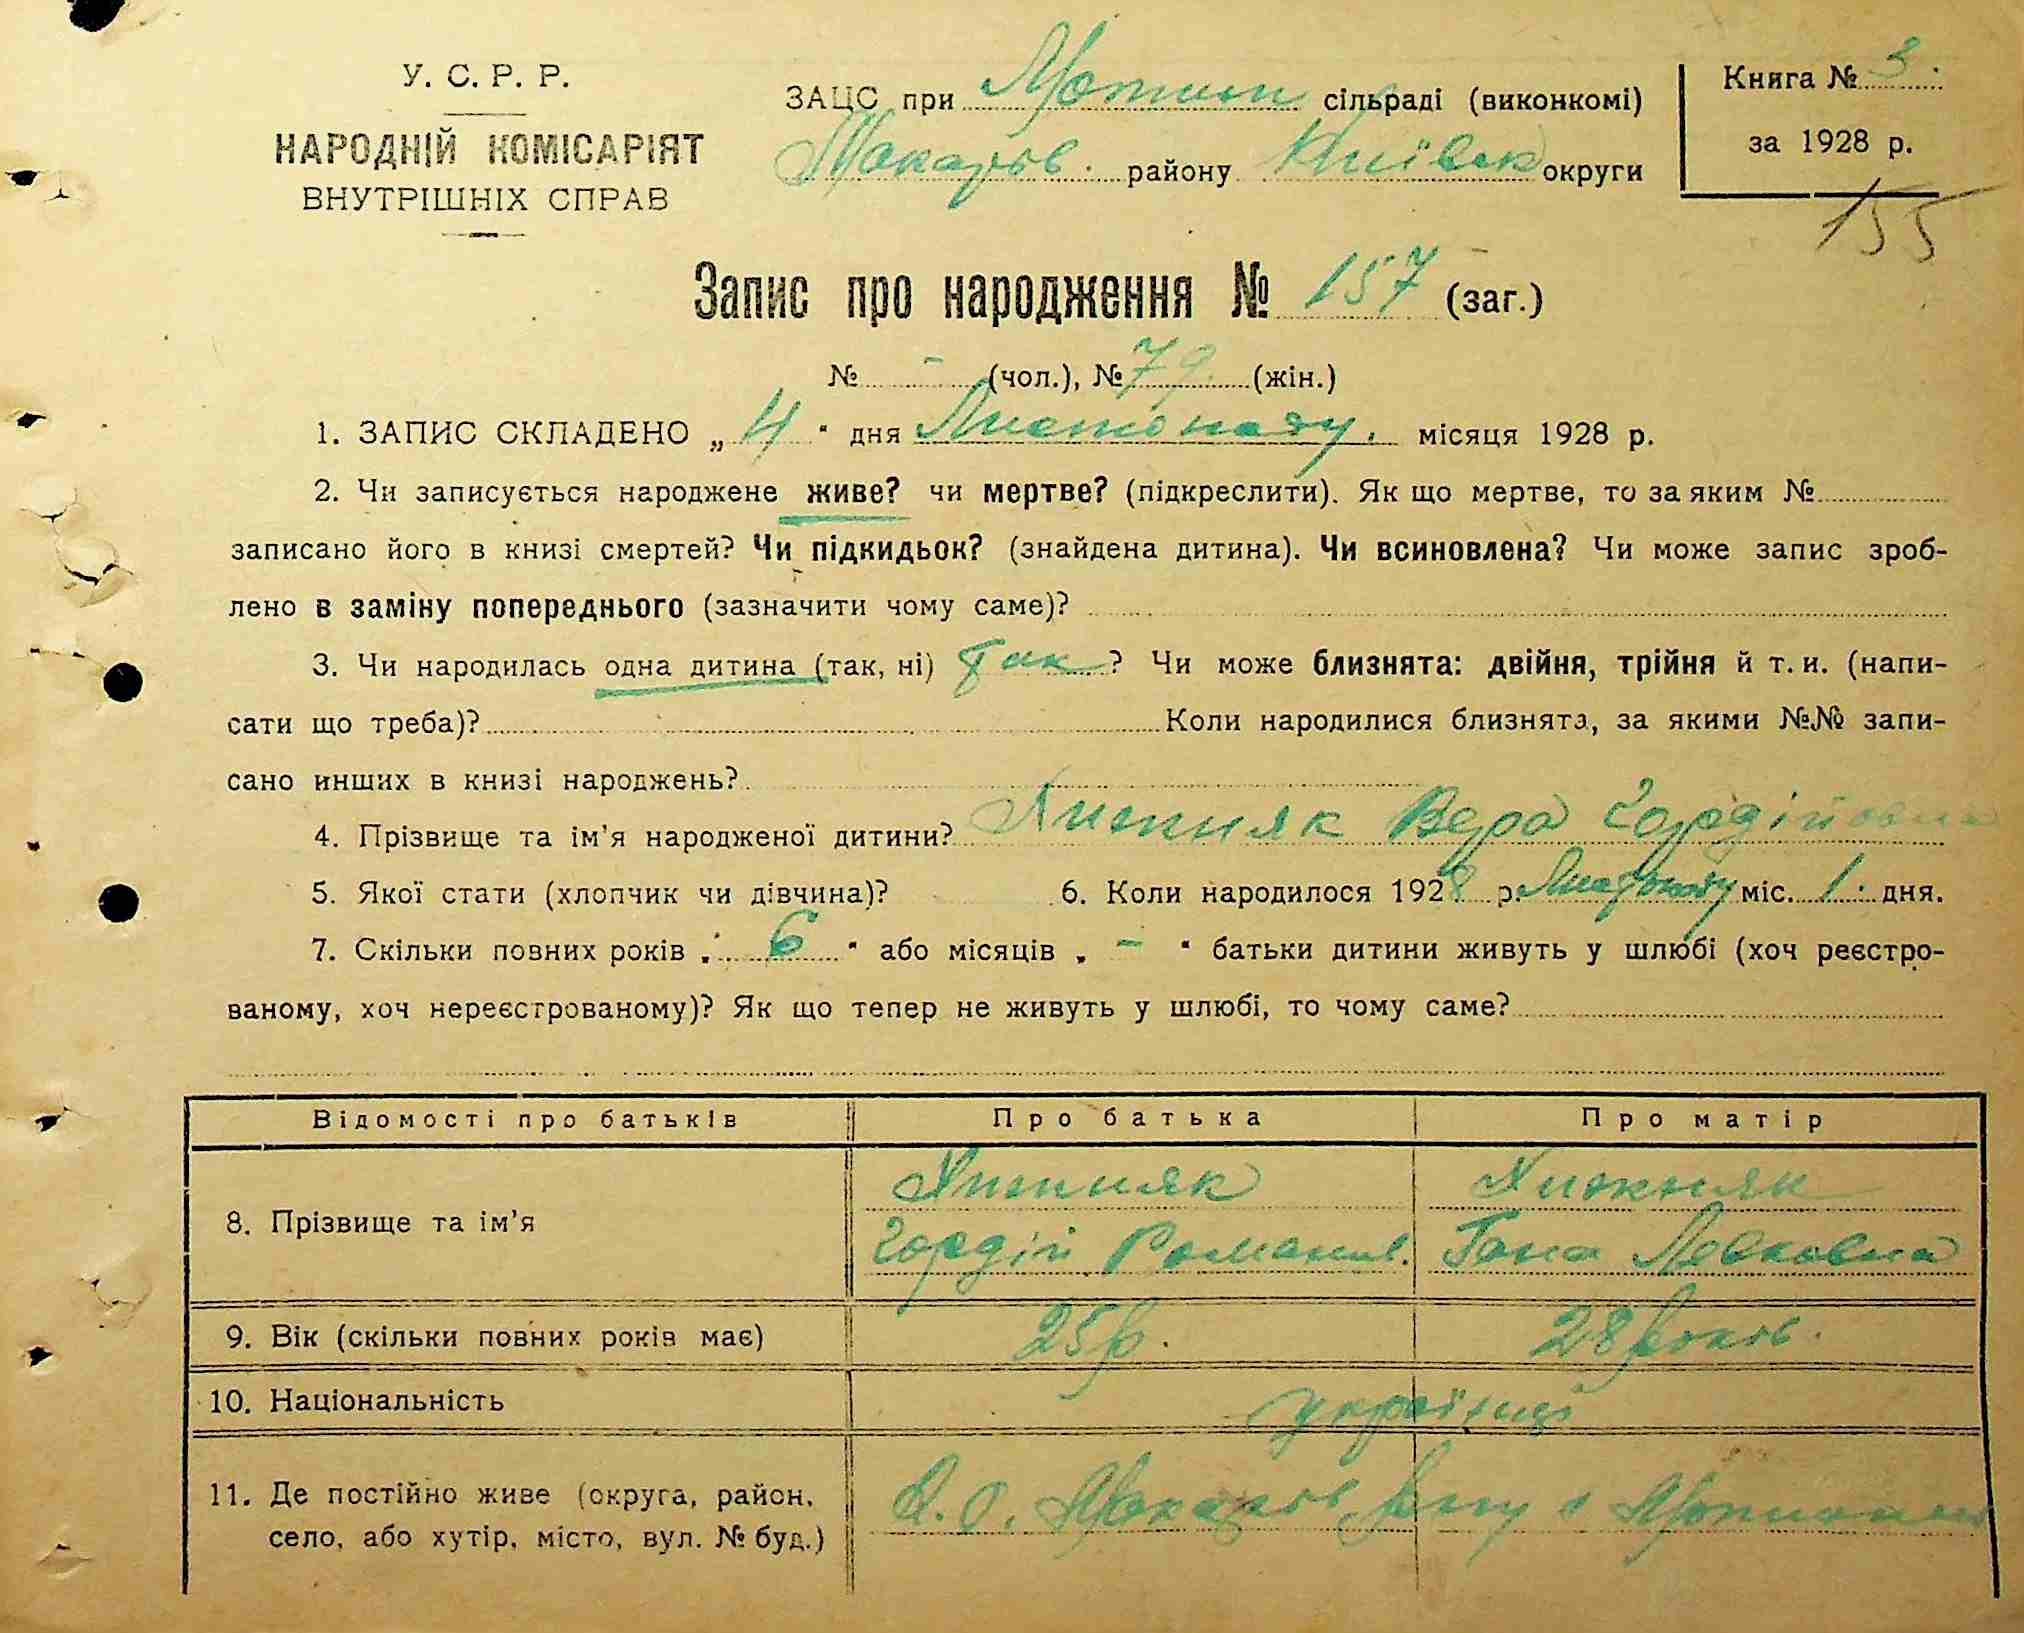 У. С. Р. Р.
НАРОДНІЙ КОМІСАРІЯТ
ВНУТРІШНІХ СПРАВ
ЗАЦС при Мотижин сільраді (виконкомі)
Макарів. району Київськ округи
Книга № 3.
за 1928 р.
155
Запис про народження № 157 (заг.)
№ - (чол.), № 79. (жін.)
1. ЗАПИС СКЛАДЕНО „ 4 " дня Листопаду. місяця 1928 р.
2. Чи записується народжене живе? чи мертве? (підкреслити). Як що мертве, то за яким №
записано його в книзі смертей? Чи підкидьок? (знайдена дитина). Чи всиновлена? Чи може запис зроб-
лено в заміну попереднього (зазначити чому саме)?
3. Чи народилась одна дитина (так, ні) Так ? Чи може близнята: двійня, трійня й т. и. (напи-
сати що треба)? Коли народилися близнята, за якими №№ запи-
сано инших в книзі народжень?
4. Прізвище та ім'я народженої дитини? Хижняк Вера Гордійовна
5. Якої стати (хлопчик чи дівчина)? 6. Коли народилося 1928 р. Листопаду міс. 1 дня.
7. Скільки повних років „ 6 " або місяців „ - " батьки дитини живуть у шлюбі (хоч реєстро-
ваному, хоч нереєстрованому)? Як що тепер не живуть у шлюбі, то чому саме?
Відомості про батьків Про батька Про матір
8. Прізвище та ім'я
Хижняк Хижняк
Гордій Романів. Гана Левковна
9. Вік (скільки повних років має) 25 р. 28 років.
10. Національність українці
11. Де постійно живе (округа, район,
село, або хутір, місто, вул. № буд.)
К. О. Макарів р-ну с Мотижин